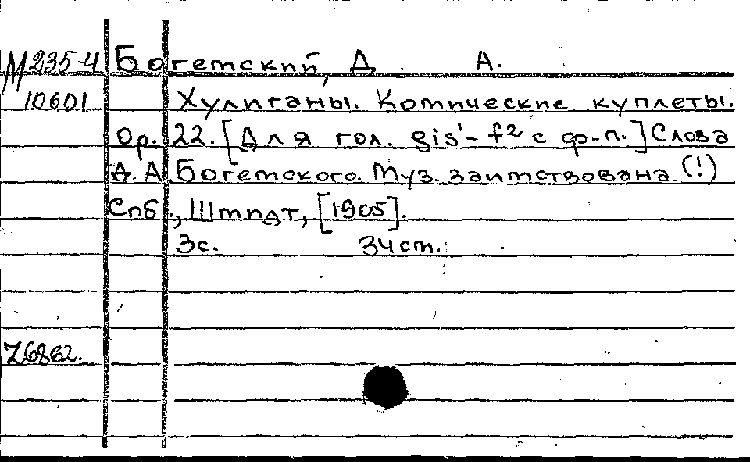 М 235-4 Богемский, Д. А.
10601 Хулиганы. Комические куплеты.
Ор. 22. [Для гол. gis'-f² с ф-п.] Слова
Д. А. Богемского. Муз. заимствована (!)
Спб., Штпдт, [1905].
3с. 34ст.
76882.